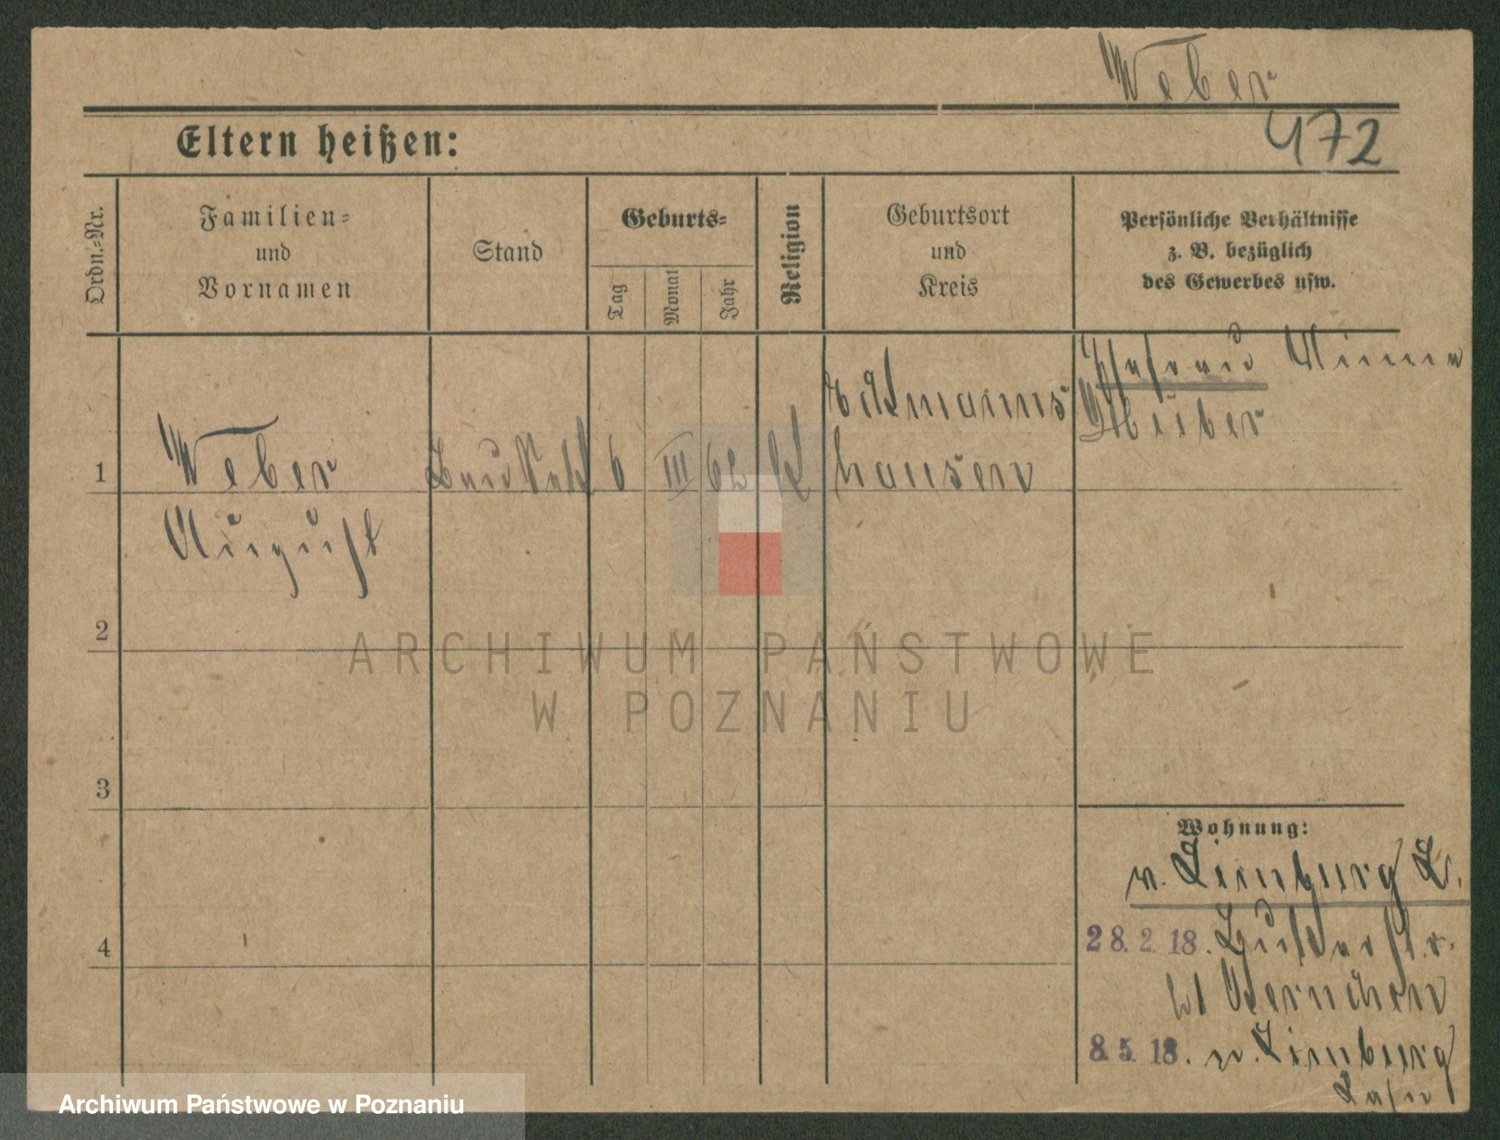 Weber
472
Eltern heißen:
Ordn.-Nr.
Familien-
und
Vornamen
Stand
Geburts-
Tag
Monat
Jahr
Religion
Geburtsort
und
Kreis
Persönliche Verhältnisse
z. B. bezüglich
des Gewerbes usw.
1
Weber
August
6
III
62
k
hausen
Ehefrau
2
3
4
Wohnung:
n. Limburg L.
28. 2. 18.
8. 5. 18. n. Limburg
Lahn
ARCHIWUM PAŃSTWOWE
W POZNANIU
Archiwum Państwowe w Poznaniu